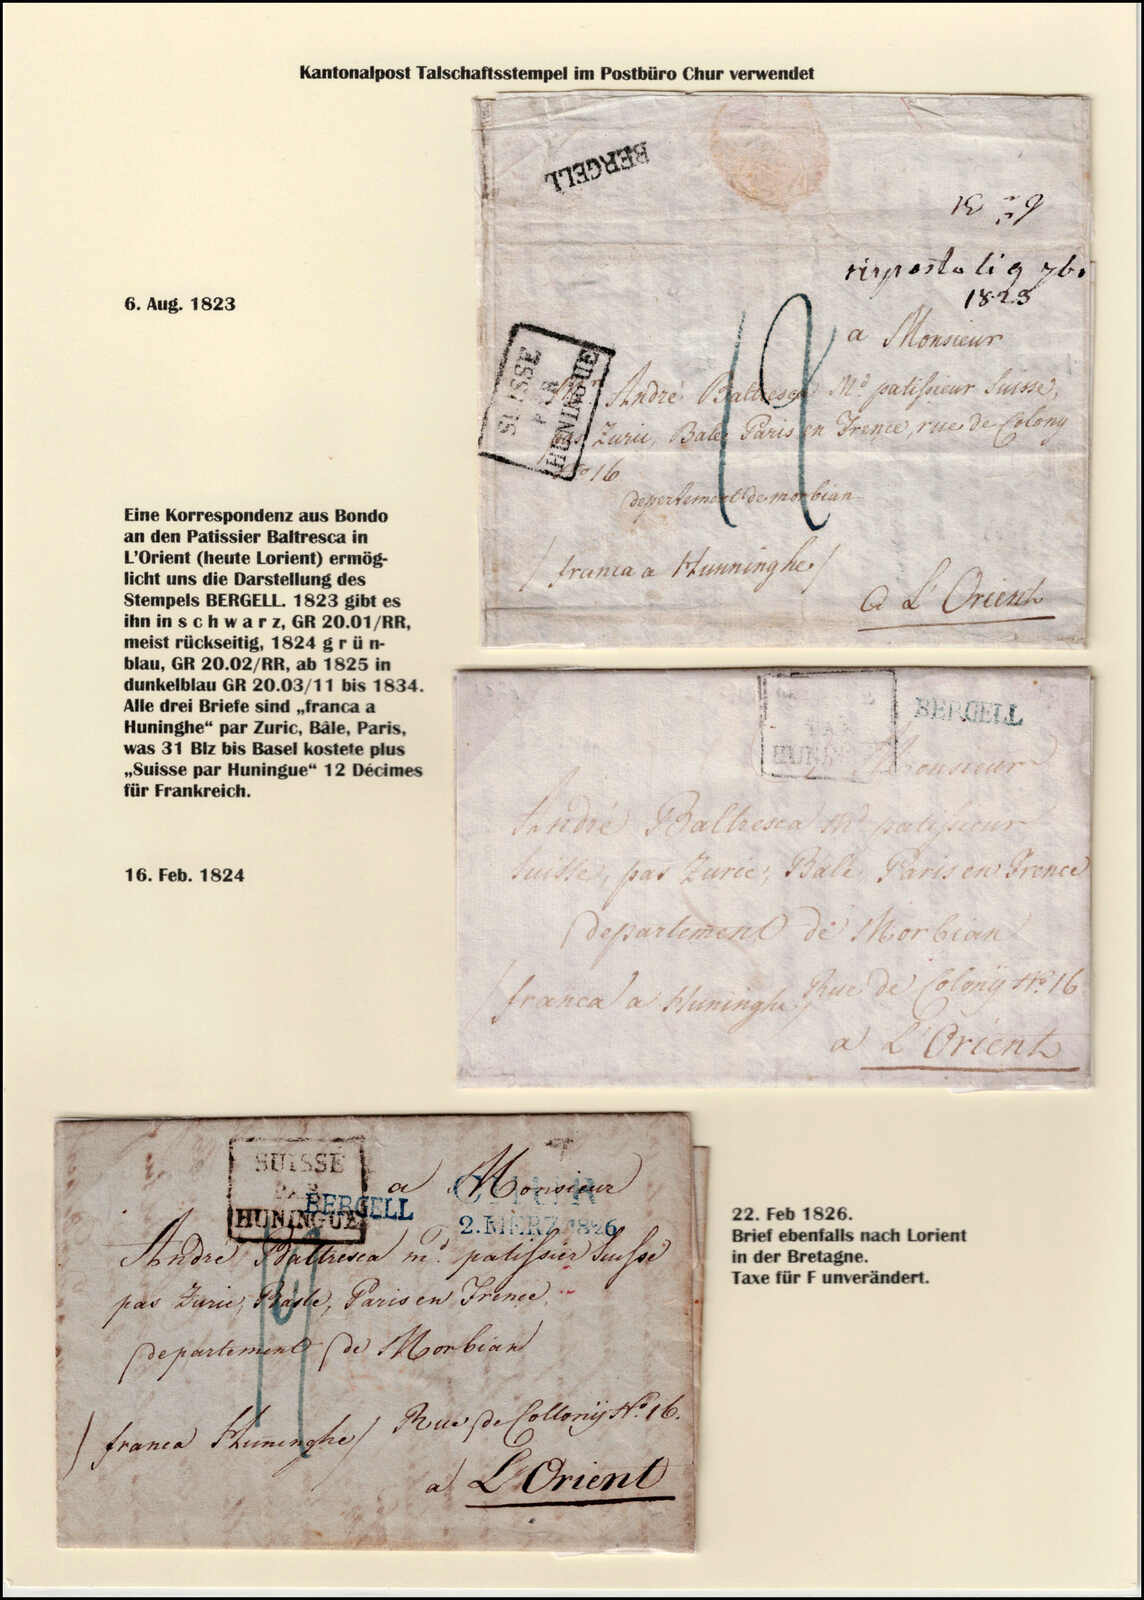 Kantonalpost Talschaftsstempel im Postbüro Chur verwendet
BERGELL
risposta li 9 7b.
1823
6. Aug. 1823
a Monsieur
SUISSE
PAR
HUNINGUE
André Baltresca Md patissieur Suisse,
pas Zuric, Bale, Paris en Frence, rue de Colony
No 16
12
departement de morbian
/ franca a Hunninghe /
a L'Orient
Eine Korrespondenz aus Bondo
an den Patissier Baltresca in
L'Orient (heute Lorient) ermög-
licht uns die Darstellung des
Stempels BERGELL. 1823 gibt es
ihn in s c h w a r z, GR 20.01/RR,
meist rückseitig, 1824 g r ü n-
blau, GR 20.02/RR, ab 1825 in
dunkelblau GR 20.03/11 bis 1834.
Alle drei Briefe sind „franca a
Huninghe“ par Zuric, Bâle, Paris,
was 31 Blz bis Basel kostete plus
„Suisse par Huningue“ 12 Décimes
für Frankreich.
16. Feb. 1824
PAR
HUNINGUE
BERGELL
a Monsieur
André Baltresca Md patissieur
Suisse, pas Zuric, Bale Paris en Frence
departement de Morbian
/ franca a Huninghe / Rue de Colonÿ No. 16
a L'Orient
SUISSE
PAR
HUNINGUE
BERGELL
CHUR
2. MERZ 1826
a Monsieur
André Baltresca md. patissier Suisse
pas Zuric, Basle, Paris en Frence
departement de Morbian
/ franca Huninghe / Rue de Collonÿ No. 16.
a L'Orient
22. Feb 1826.
Brief ebenfalls nach Lorient
in der Bretagne.
Taxe für F unverändert.